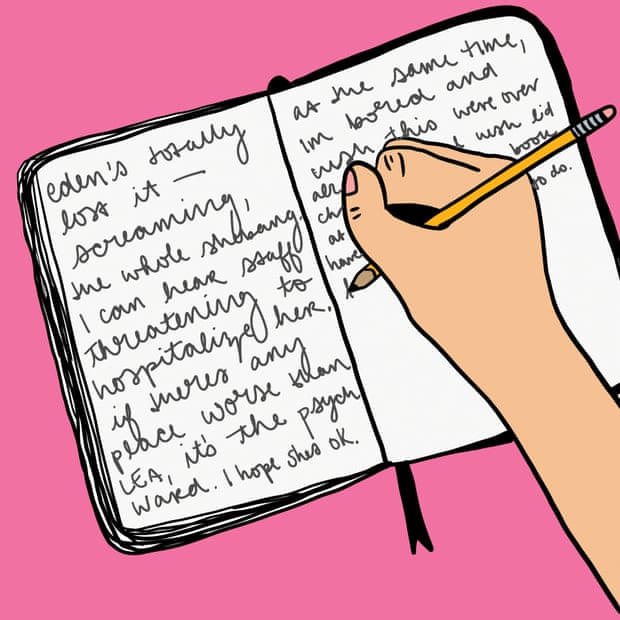 eden's totally
lost it —
screaming,
the whole shabang.
I can hear staff
threatening to
hospitalize her.
if theres any
place worse than
LEA, it's the psych
ward. I hope shes OK.
at the same time,
Im bored and
wish this were over
wish I'd
book
to do.
at
have